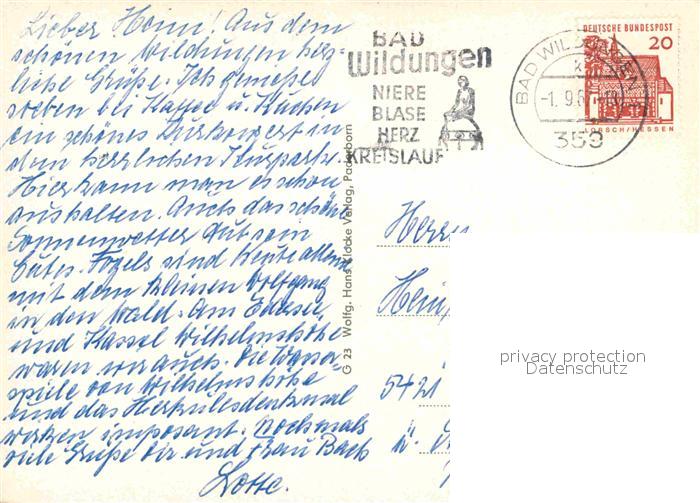 Lieber Heini! Aus dem
schönen Wildungen herz-
liche Grüße. Ich genieße
soeben bei Kaffee u. Kuchen
ein schönes Kurkonzert in
dem herrlichen Kurpark.
Hier kann man es schon
aushalten. Auch das schöne
Sonnenwetter tut sein
Gutes. Fogels sind heute
mit dem kleinen Wolfgang
in den Wald. Am Edersee
und Kassel Wilhelmshöhe
waren wir auch. Die Wasser-
spiele von Wilhelmshöhe
und das Herkulesdenkmal
wirken imposant. Nochmals
viele Grüße Dir und Frau Back
Lotte.
G 23 Wolfg. Hans Klocke Verlag, Paderborn
BAD
Wildungen
NIERE
BLASE
HERZ
KREISLAUF
BAD WILDUNGEN
-1.9.6
359
DEUTSCHE BUNDESPOST
20
LORSCH/HESSEN
Herrn
Hein
5421
privacy protection
Datenschutz